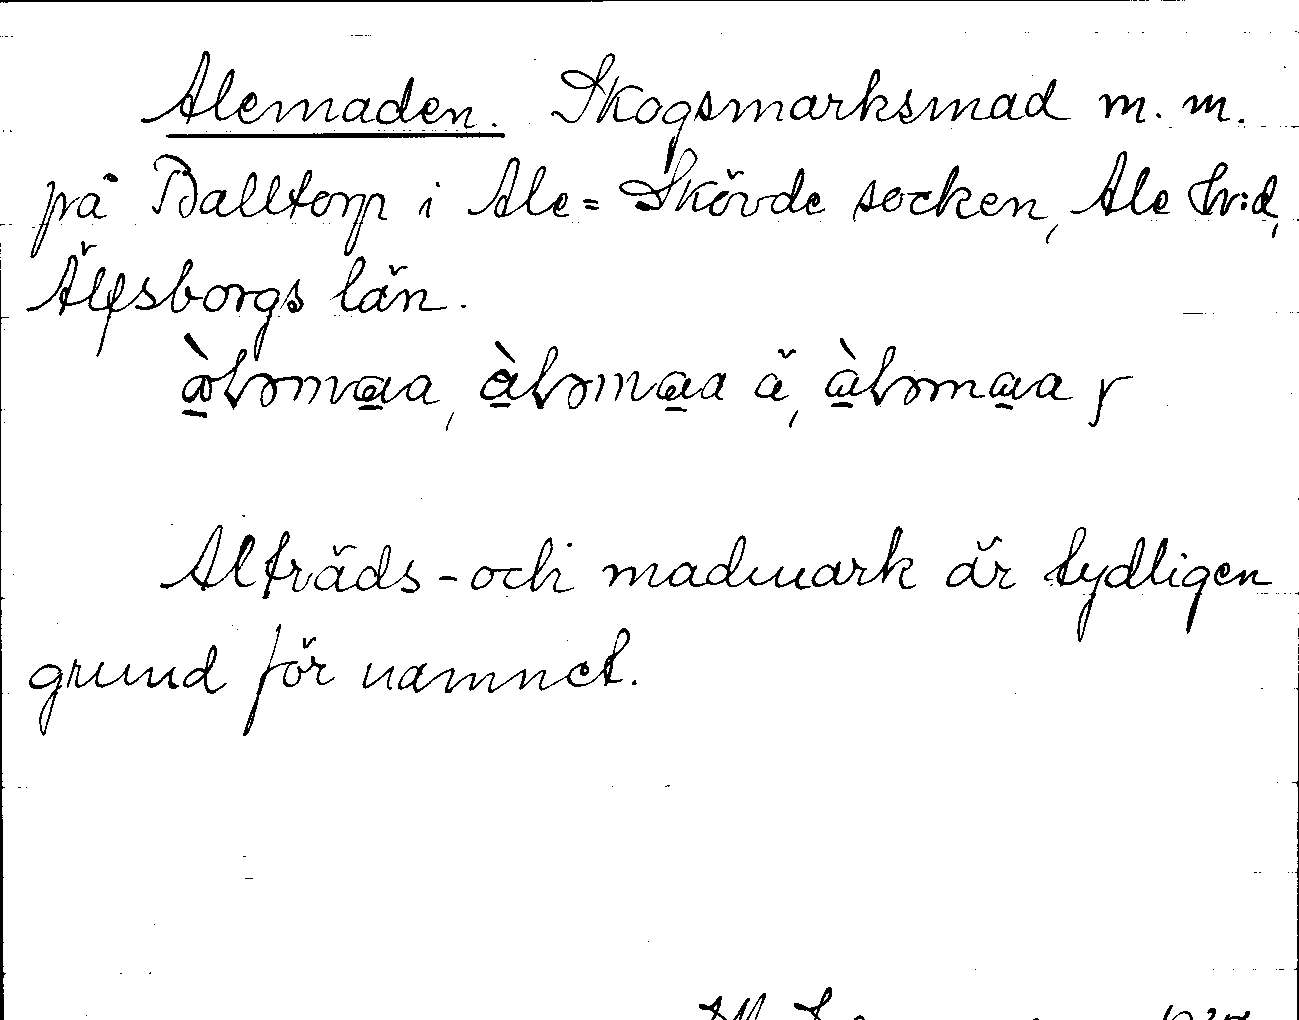 Alemaden. Skogsmarksmad m. m.
på Balltorp i Ale=Skövde socken, Ale hrd,
Älfsborgs län.
Alträds- och madmark är tydligen
grund för namnet.